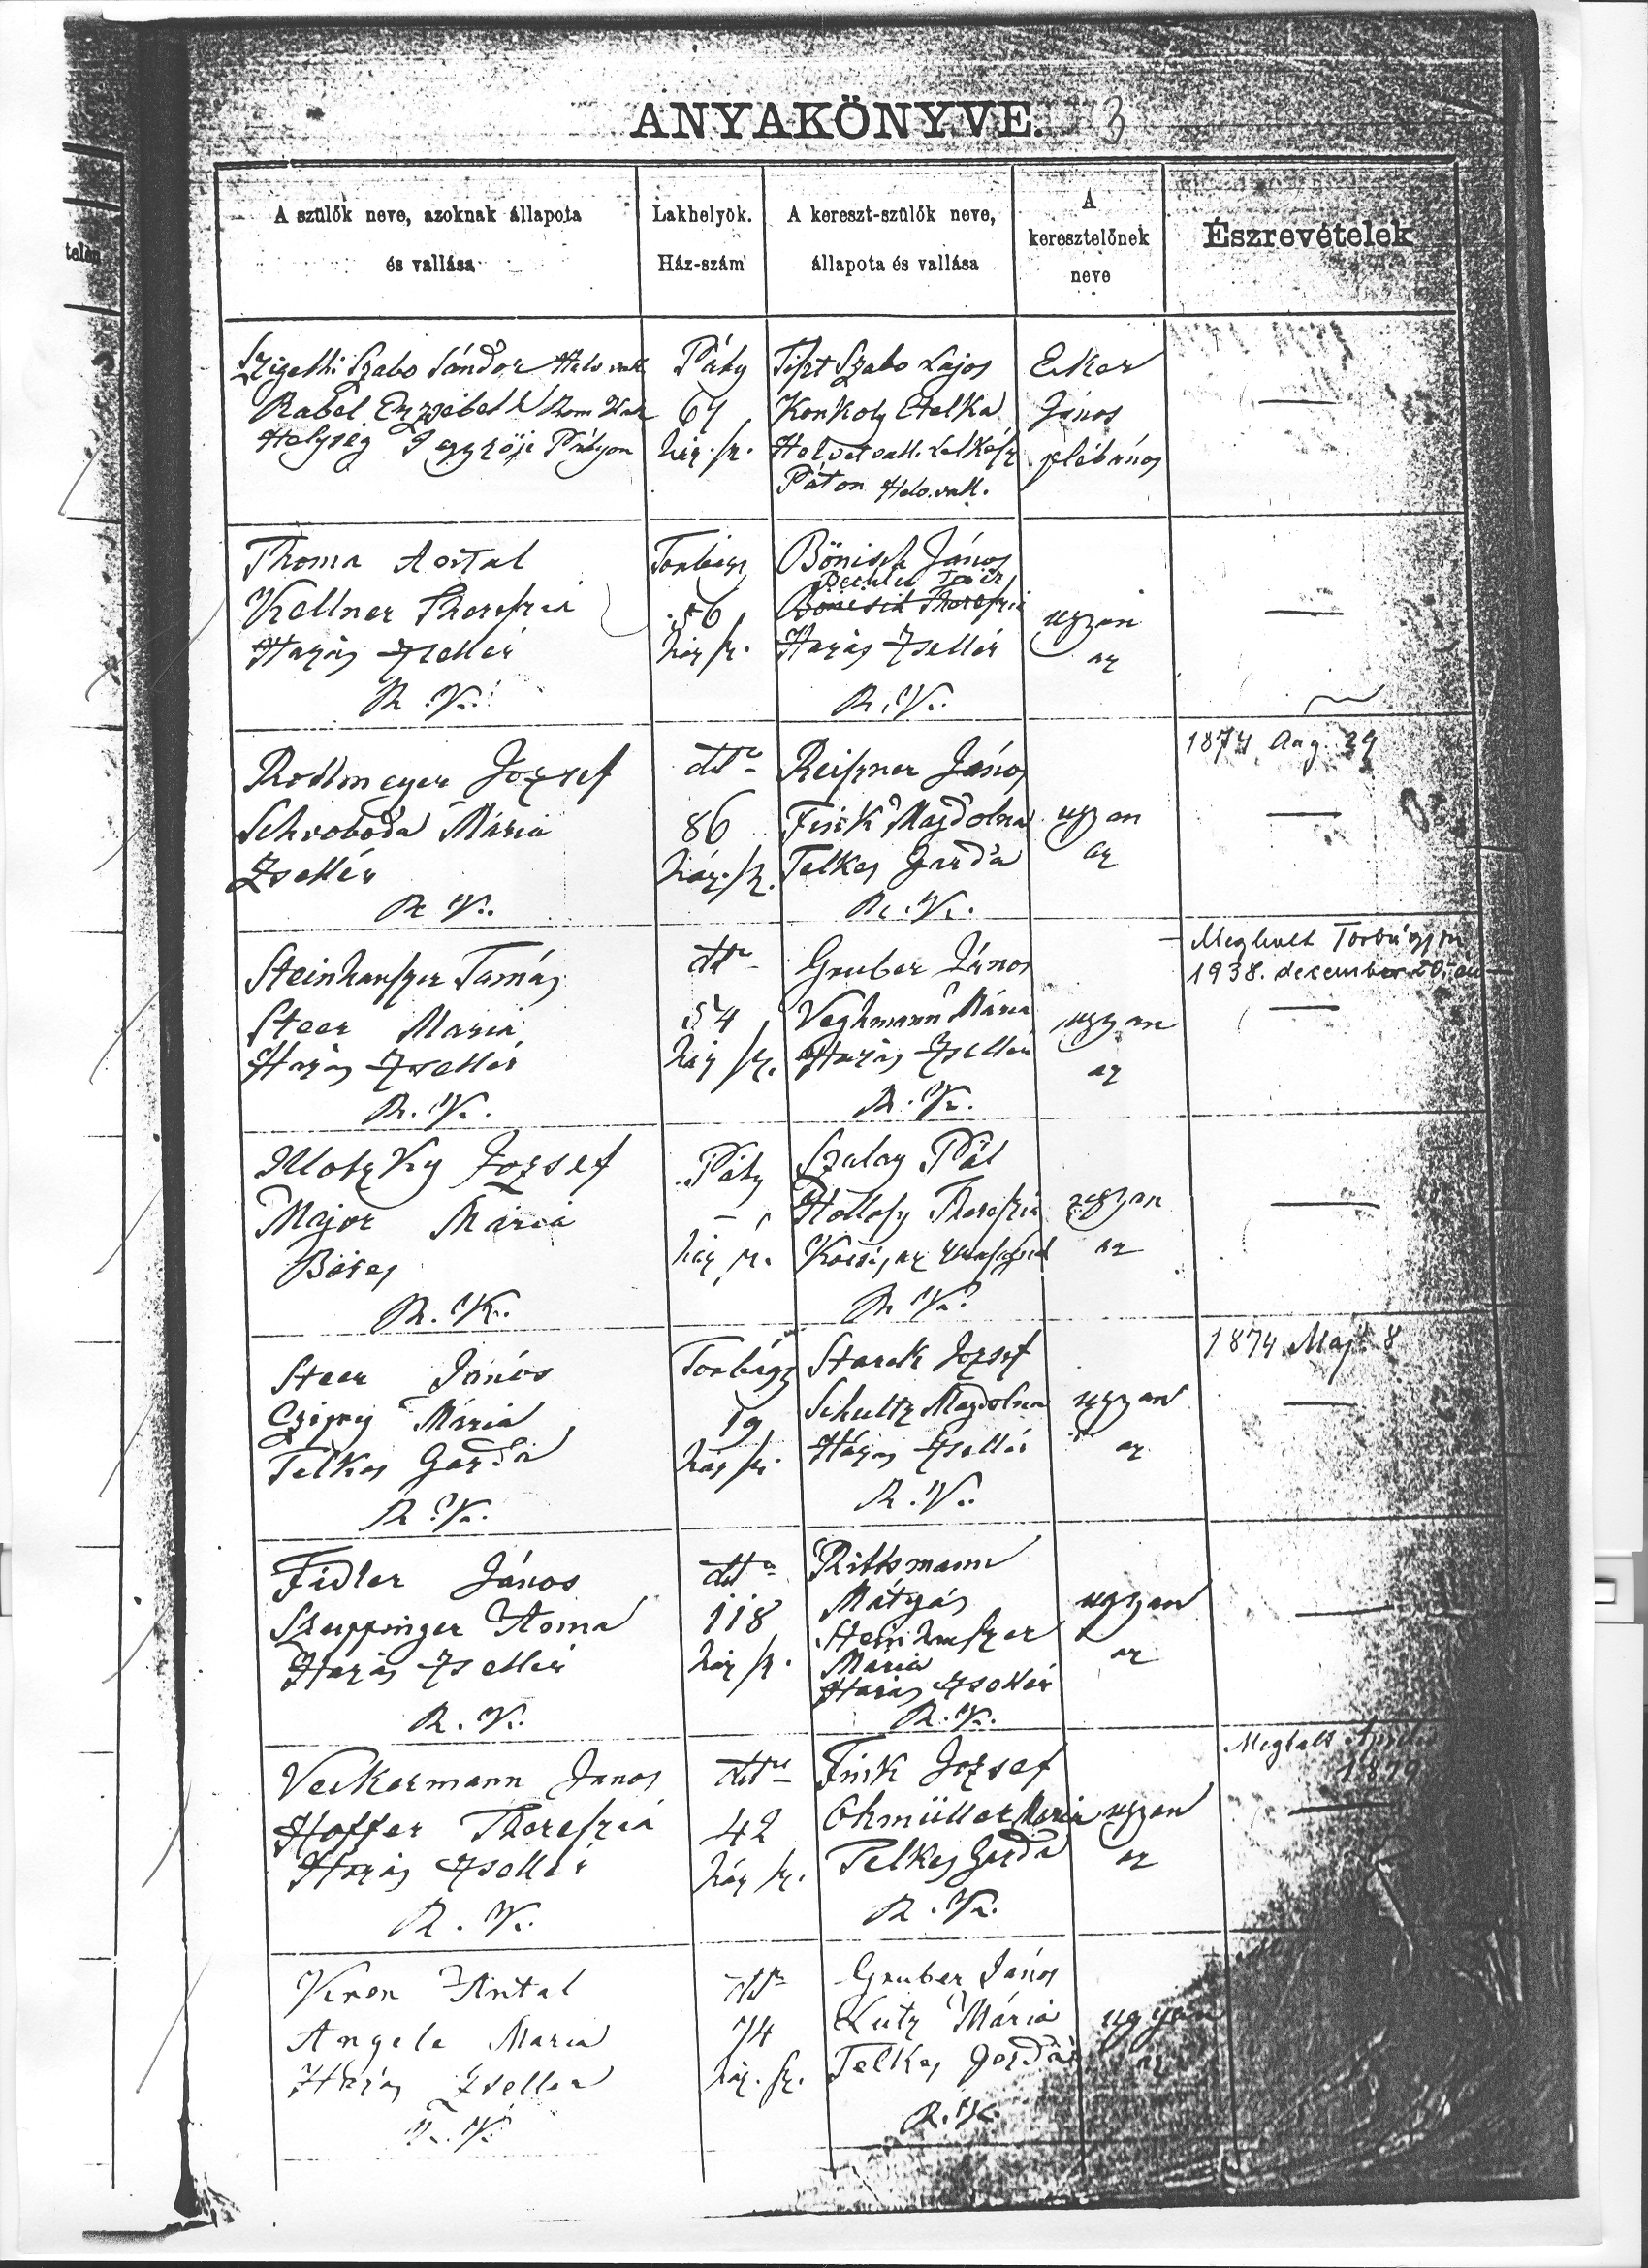 ANYAKÖNYVE. 3
A szülők neve, azoknak állapota
és vallása
Lakhelyök.
Ház-szám
A kereszt-szülők neve,
állapota és vallása
A
keresztelőnek
neve
Észrevételek
telen
Szigethi Szabo Sándor Helv. vall
Rabel Erzsébeth Rom Kat
Helység Jegyzője Pátyon
Páty
64
ház. sz.
Tiszt Szabo Lajos
Konkoly Etelka
Helvet vall. Lelkész
Páton Helv. vall.
Eker
János
plébános
—
Thoma Antal
Kellner Theresia
Házas Zsellér
R. K.
Torbágy
56
ház sz.
Bönisch János
Bönisch Theresia
Házas Zsellér
R. K.
ugyan
az
—
Rodlmeyer József
Schvoboda Mária
Zsellér
R. K.
dtto
86
ház. sz.
Reiszner János
Fink Magdolna
Telkes Gazda
R. K.
ugyan
az
1874 Aug. 29
—
Steinhauszer Tamás
Steer Maria
Házas Zsellér
R. K.
dtto
54
ház sz.
Gruber János
Veghmann Mária
Házas Zsellér
R. K.
ugyan
az
Meghalt Torbágyon
1938. december 20.-án
—
Illotzky József
Major Mária
Béres
R. K.
Páty
—
ház sz.
Szalay Pál
Hollosy Theresia
Kocsis az
R. K.
ugyan
az
—
Steer János
Czigny Mária
Telkes Gazda
R. K.
Torbágy
19
ház sz.
Starck József
Schultz Magdolna
Házas Zsellér
R. K.
ugyan
az
1874 Maj. 8
—
Fidler János
Szuppinger Anna
Házas Zsellér
R. K.
dtto
118
ház sz.
Rittsmann
Mátyás
Steinhauszer
Maria
Házas Zsellér
R. K.
ugyan
az
—
Veckermann János
Hoffer Theresia
Házas Zsellér
R. K.
dtto
42
ház sz.
Fink József
Ohmüller Maria
Telkes Gazda
R. K.
ugyan
az
Meghalt
—
Kron Antal
Angele Maria
Házas Zseller
R. K.
dtto
74
ház. sz.
Gruber János
Lutz Mária
Telkes Gazda
R. K.
ugyan
az